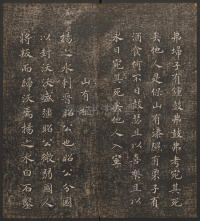 弗埽子有鍾鼓弗鼓弗考宛其死
矣他人是保山有漆隰有栗子有
酒食何不日鼓瑟且以喜樂且以
永日宛其死矣他人入室
山有
揚之水刺晉昭公也昭公分國
以封沃沃盛彊昭公微弱國人
將叛而歸沃焉揚之水白石鑿